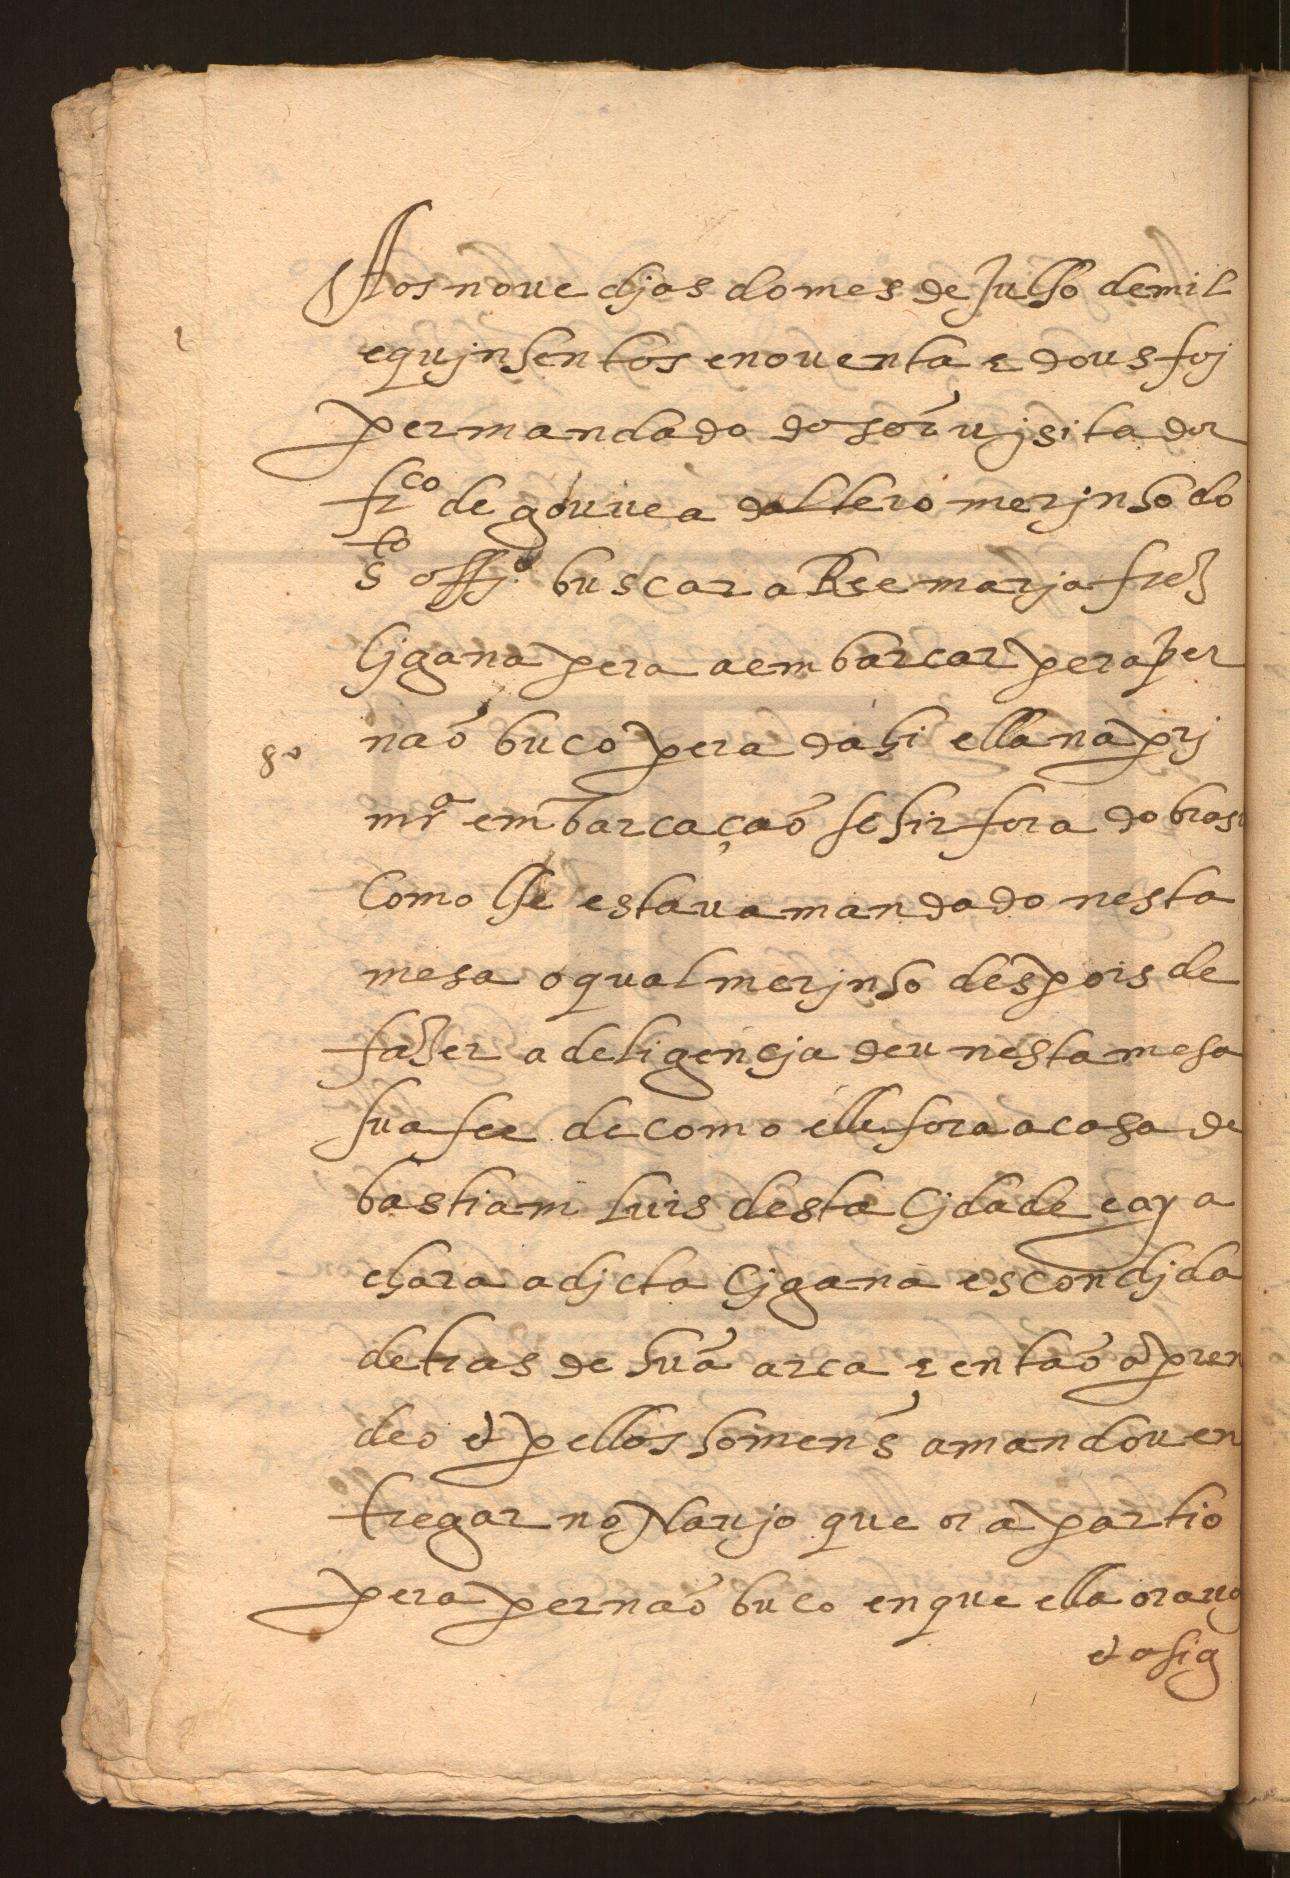 Aos noue djas do mes de Julho de mil
e qujnhentos e nouenta e dous foj
per mandado do sõr uisitador
fr^co de gouuea daltero merjnho do
s^to offj^o buscar a Ree marja frz
Cjgana pera a embarcar pera per
naõ buco pera dahi ella na prj
mr^a embarcaçaõ se hir fora do bras
Como lhe estaua mandado nesta
mesa o qual merjnho despois de
fazer a deligencja deu nesta mesa
sua fee de como elle fora a casa de
bastiam luis desta Cjdade e
achara a djcta Cjgana escondjda
detras de huã arca e entaõ a pren
deo et pellos homens a mandou en
tregar no Naujo que ora partio
pera pernaõ buco en que ella ora
et asig